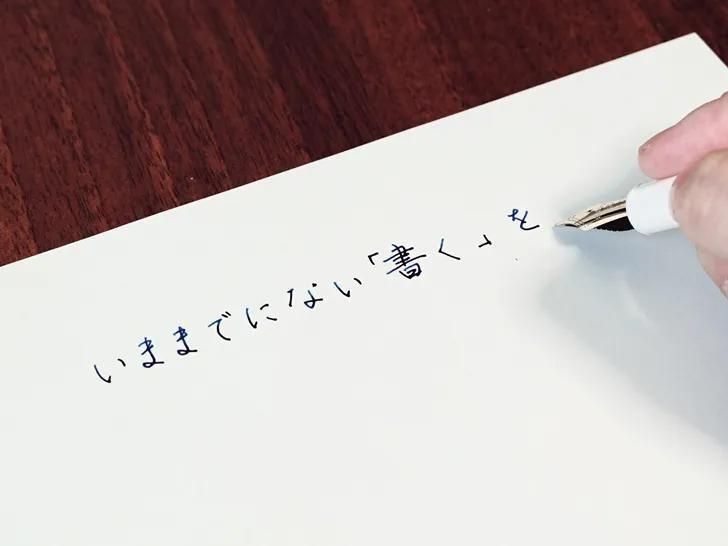 いままでにない「書く」を